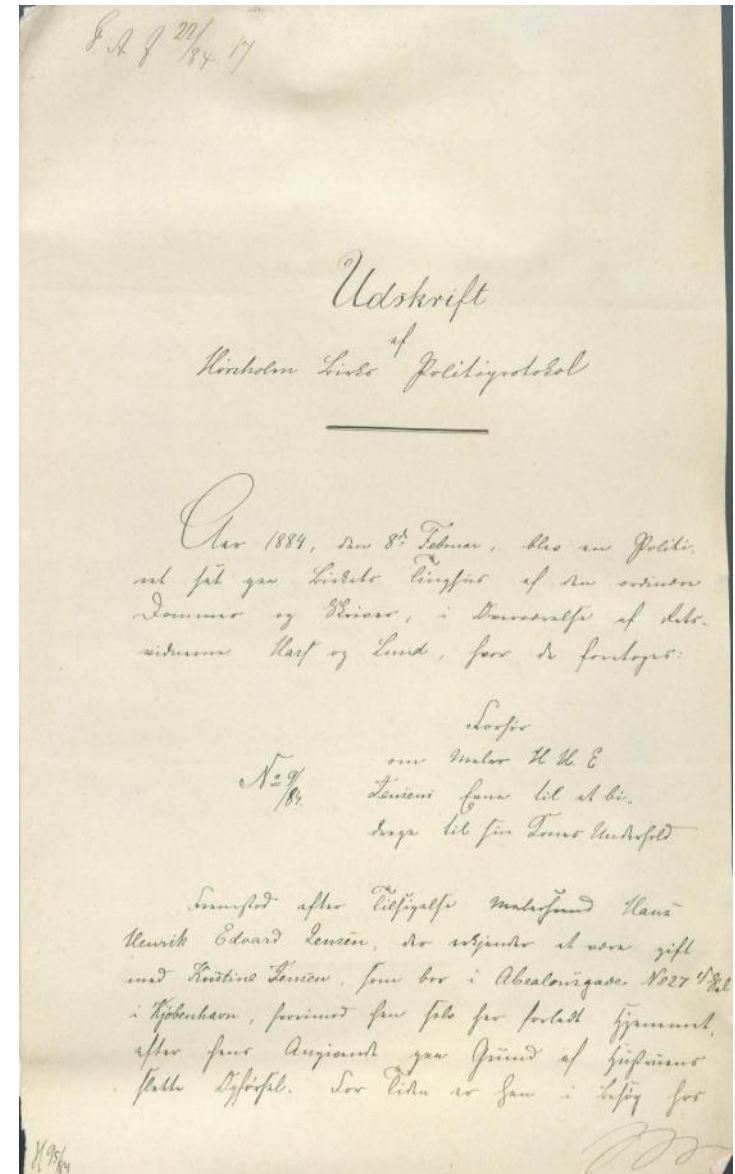 F A J 22/84 17
Udskrift
af
Hørsholm Birks Politiprotokol
Aar 1884, den 8de Februar, blev en Politi-
ret sat paa Birkets Tinghus af den ordinære
Dommer og Skriver, i Overværelse af Rets-
vidnerne Harf og Lund, hvor da foretoges:
Forhør
No 9/84.
om Maler H. H. E
Jensens Evne til at bi-
drage til sin Kones Underhold
Fremstod efter Tilsigelse Malersvend Hans
Henrik Edvard Jensen, der erkjender at være gift
med Kristine Jensen, som bor i Absalonsgade No 27
i Kjøbenhavn, hvorimod han selv har forladt Hjemmet,
efter hans Angivende paa Grund af Hustruens
slette Opførsel. For Tiden er han i Besøg hos